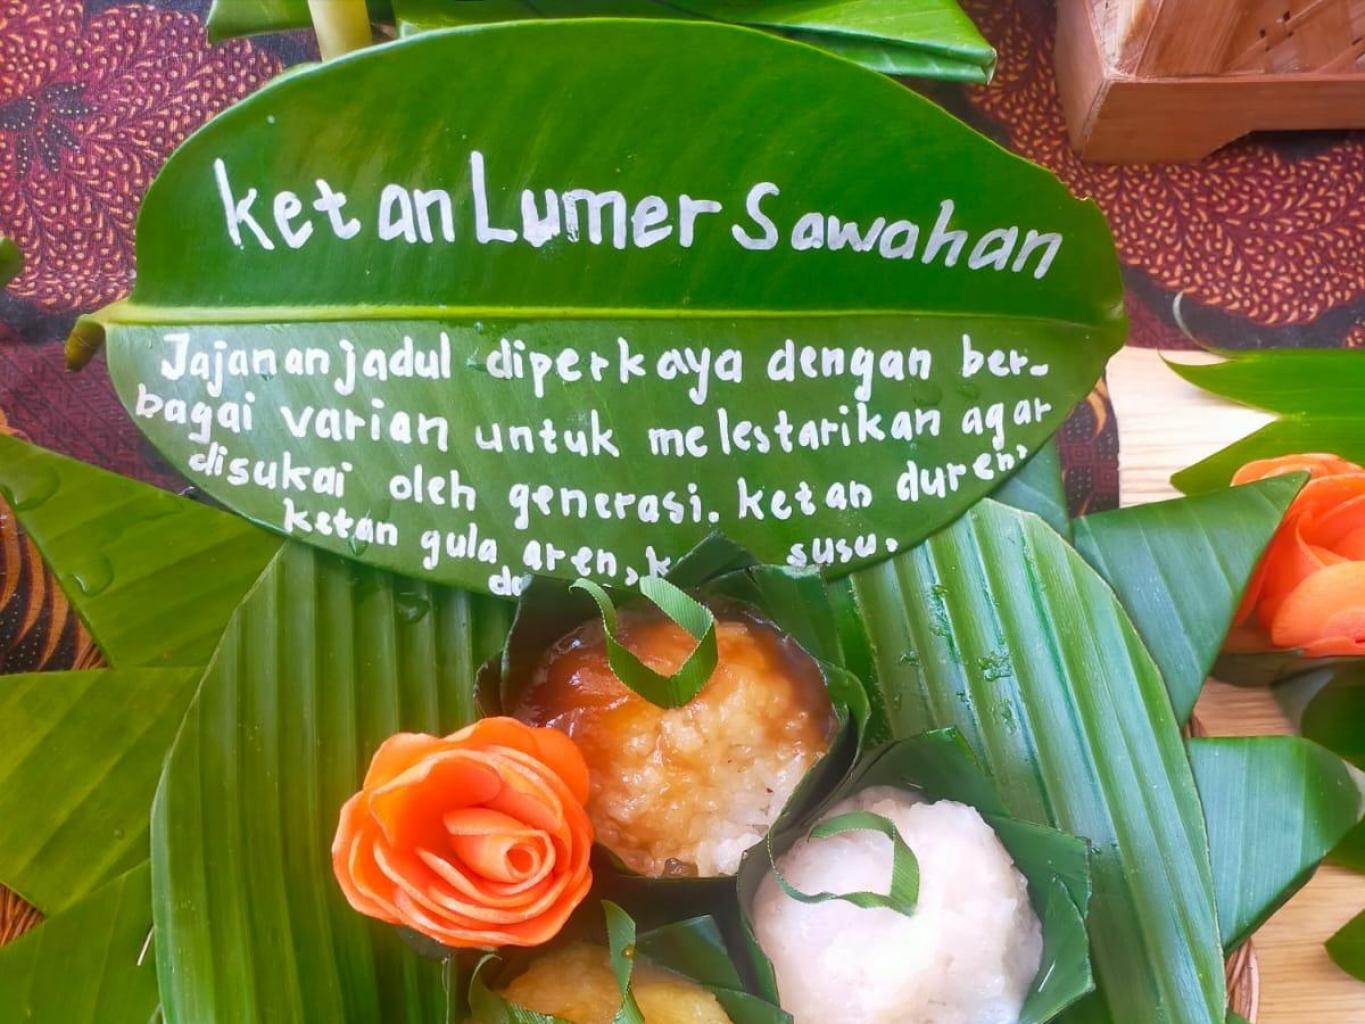 Ketan Lumer Sawahan
Jajanan jadul diperkaya dengan ber-
bagai varian untuk melestarikan agar
disukai oleh generasi. ketan duren,
ketan gula aren, susu.